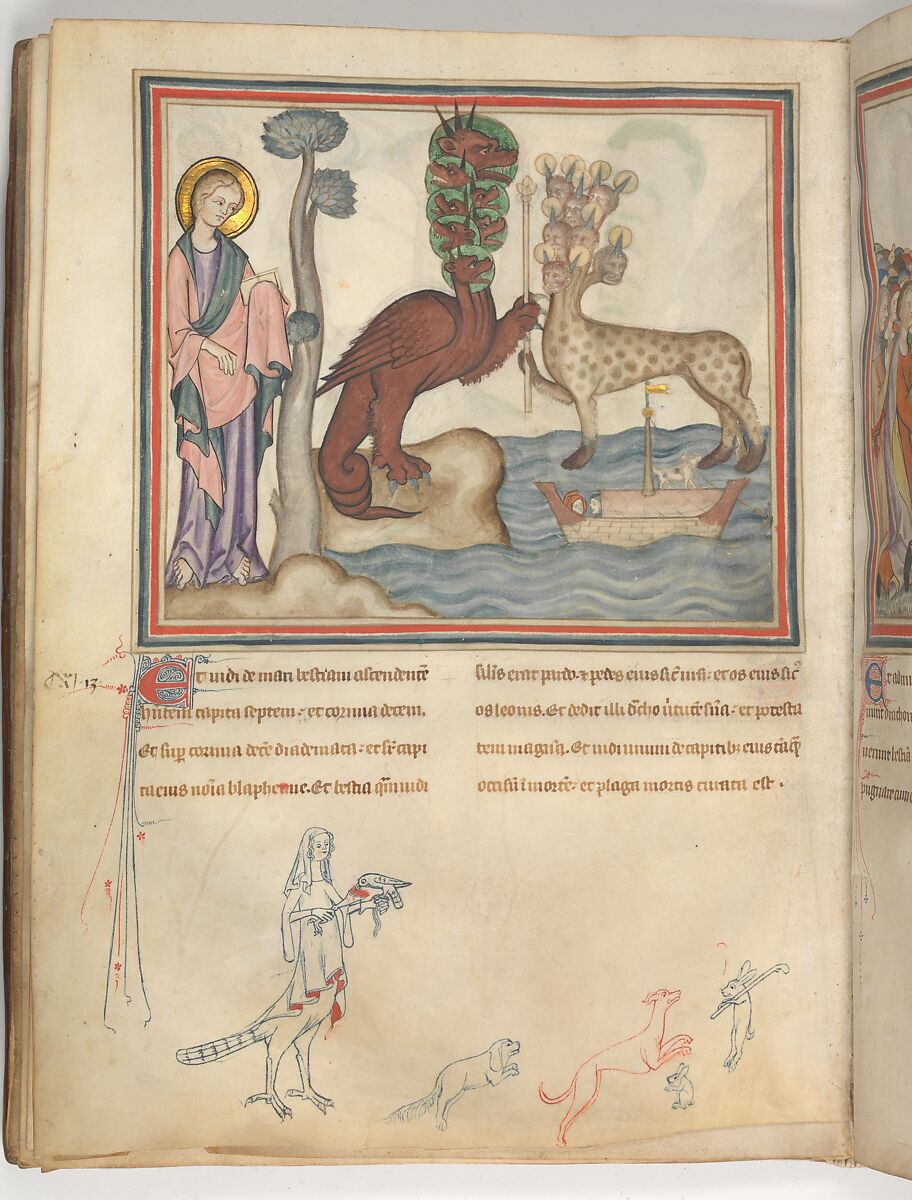 CXI · 13
Et uidi de mari bestiam ascendentē
hñtem capita septem · et cornua decem,
Et sup̱ cornua decē diademata · et sr̄ capi
ta eius noīa blaphemie. Et bestia qm̄ uidi
silis erat pardo · & pedes eius sic̄ ursi · et os eius sic̄
os leonis. Et dedit illi dc̄ho ũtutē suā · et potesta
tem magnā. Et uidi unum de capitib; eius
occisū ī mortē · et plaga mortis curata est .
Et